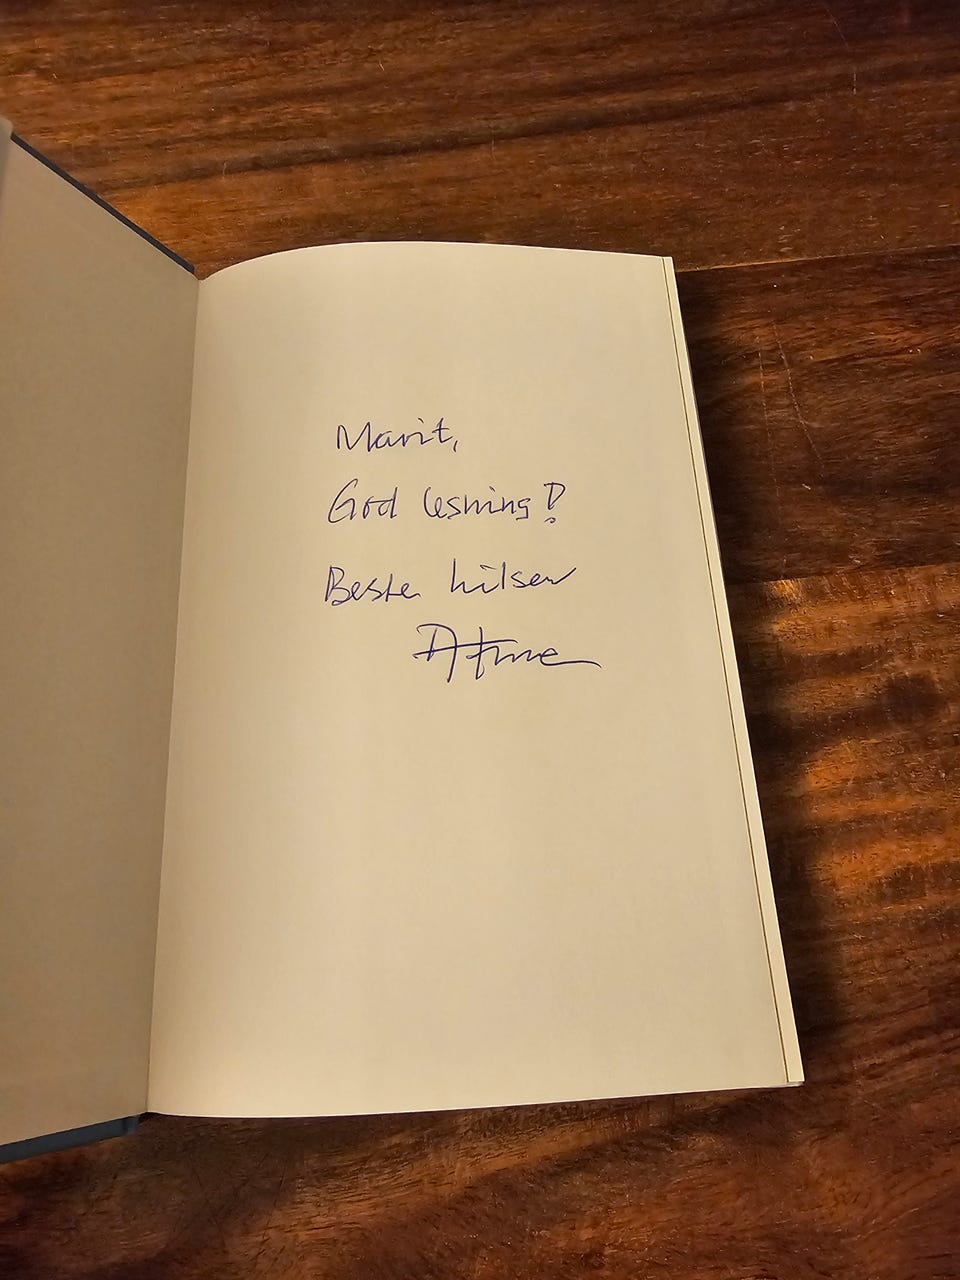 Marit,
God lesning!
Beste hilsen